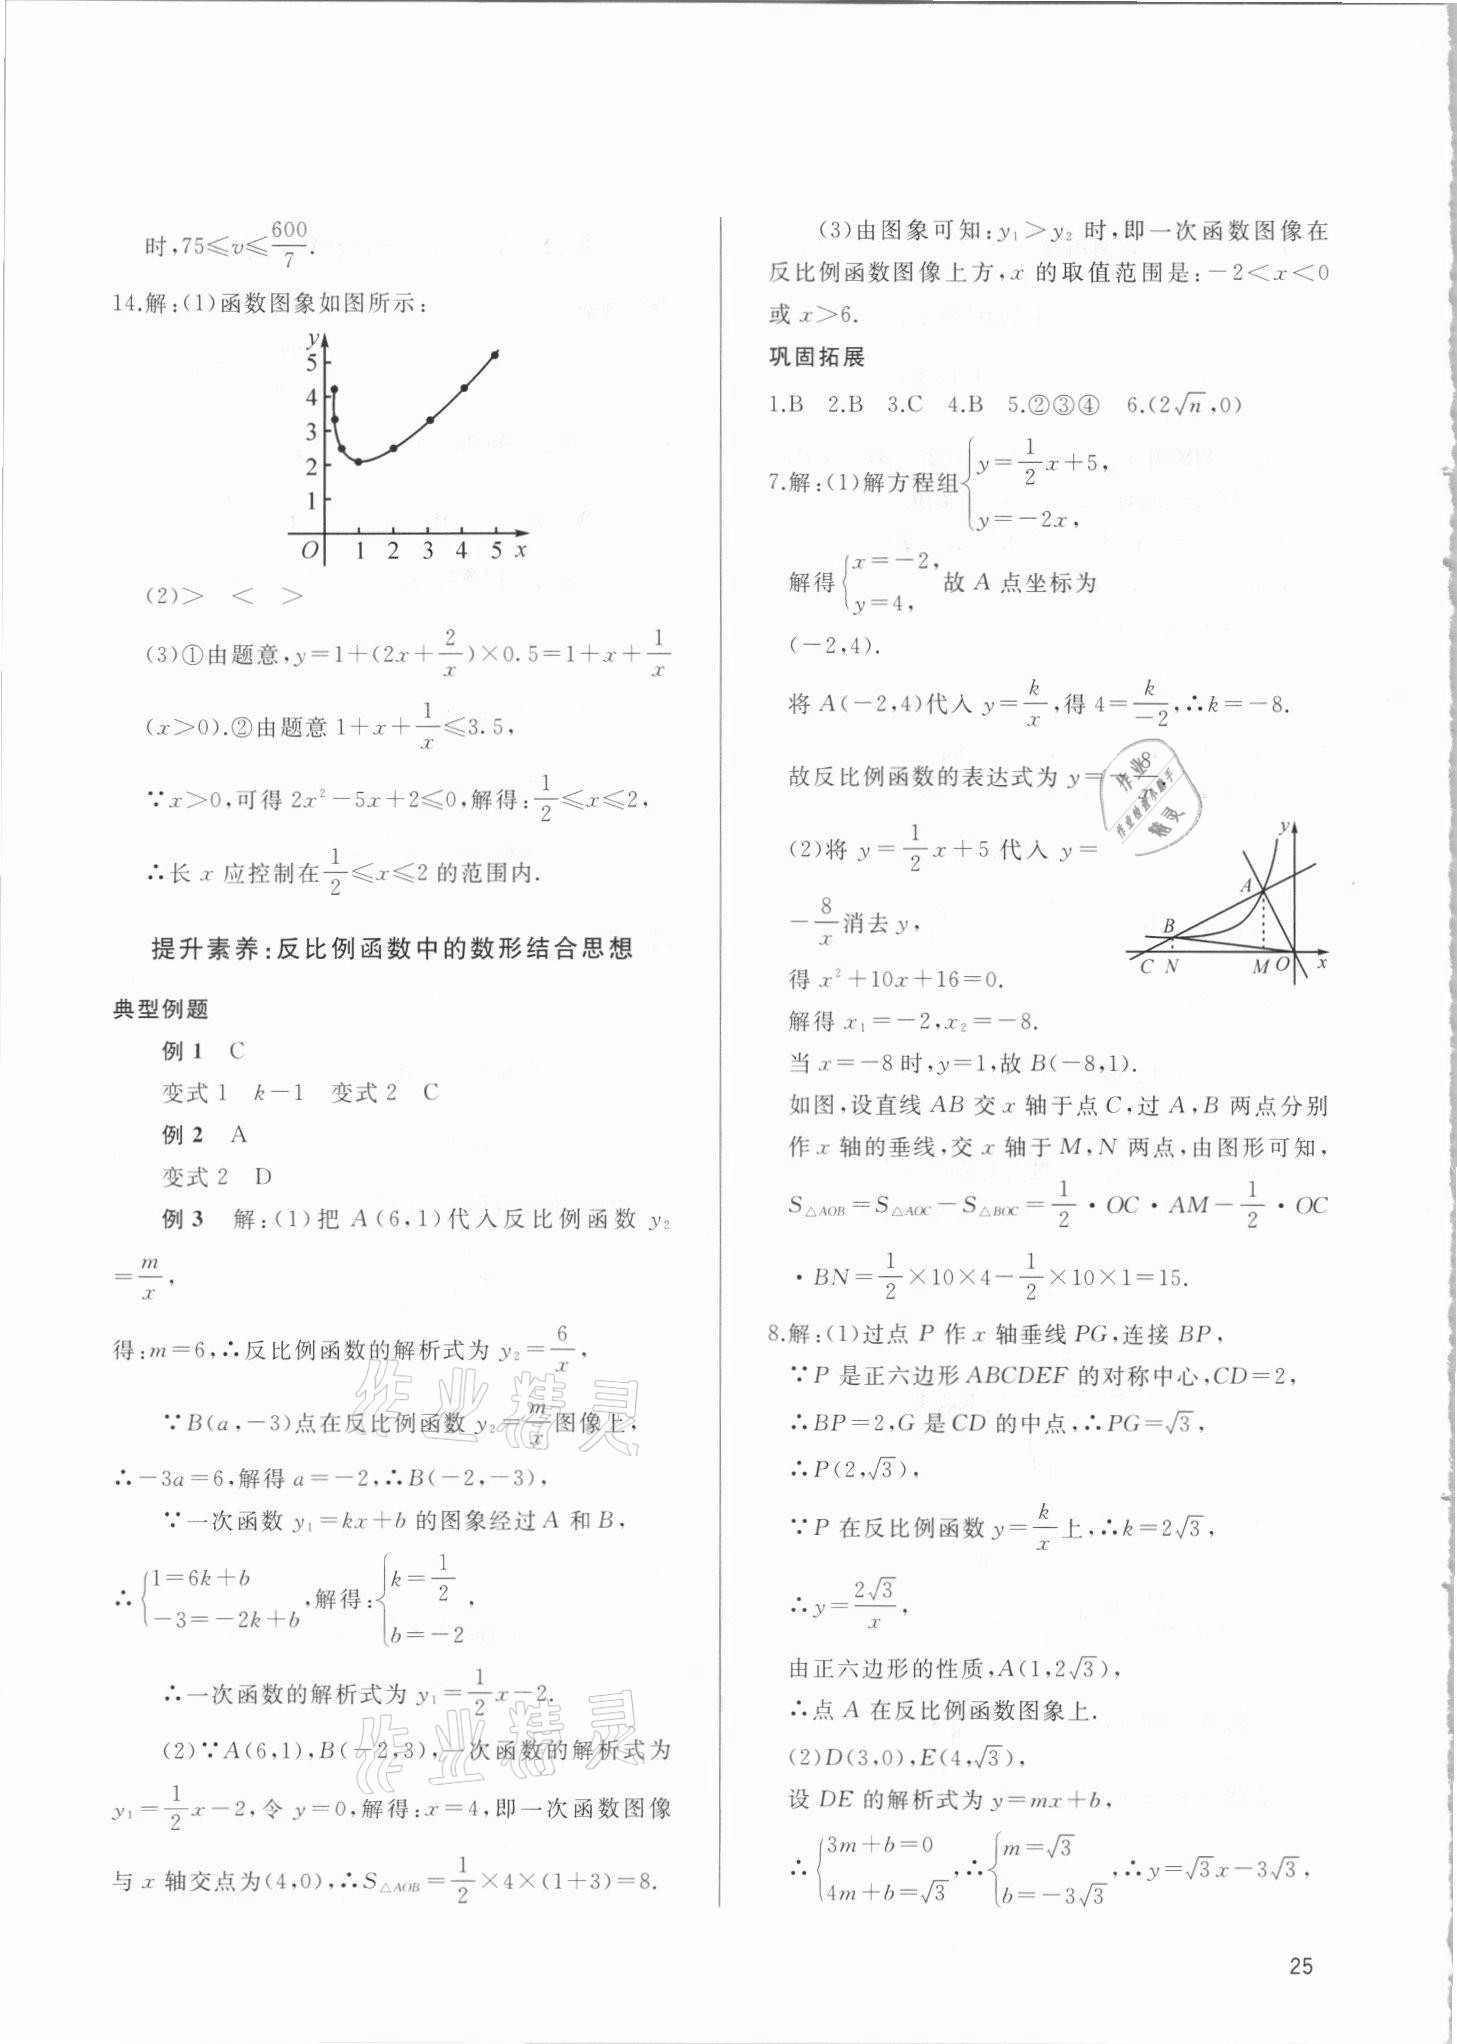 时,75≤v≤600/7.
14.解:(1)函数图象如图所示:
y
5
4
3
2
1
O 1 2 3 4 5 x
(2)> < >
(3)①由题意,y=1+(2x+2/x)×0.5=1+x+1/x
(x>0).②由题意1+x+1/x≤3.5,
∵x>0,可得2x²-5x+2≤0,解得:1/2≤x≤2,
∴长x应控制在1/2≤x≤2的范围内.
提升素养:反比例函数中的数形结合思想
典型例题
例1 C
变式1 k-1 变式2 C
例2 A
变式2 D
例3 解:(1)把A(6,1)代入反比例函数y₂
=m/x,
得:m=6,∴反比例函数的解析式为y₂=6/x,
∵B(a,-3)点在反比例函数y₂=m/x图像上,
∴-3a=6,解得a=-2,∴B(-2,-3),
∵一次函数y₁=kx+b的图象经过A和B,
∴{1=6k+b
-3=-2k+b,解得:{k=1/2
b=-2,
∴一次函数的解析式为y₁=1/2x-2.
(2)∵A(6,1),B(-2,3),一次函数的解析式为
y₁=1/2x-2,令y=0,解得:x=4,即一次函数图像
与x轴交点为(4,0),∴S△AOB=1/2×4×(1+3)=8.
(3)由图象可知:y₁>y₂时,即一次函数图像在
反比例函数图像上方,x的取值范围是:-2<x<0
或x>6.
巩固拓展
1.B 2.B 3.C 4.B 5.②③④ 6.(2√n,0)
7.解:(1)解方程组{y=1/2x+5,
y=-2x,
解得{x=-2,
y=4,故A点坐标为
(-2,4).
将A(-2,4)代入y=k/x,得4=k/-2,∴k=-8.
故反比例函数的表达式为y=-8/x.
(2)将y=1/2x+5代入y=
-8/x消去y,
y
A
B
C N M O x
得x²+10x+16=0.
解得x₁=-2,x₂=-8.
当x=-8时,y=1,故B(-8,1).
如图,设直线AB交x轴于点C,过A,B两点分别
作x轴的垂线,交x轴于M,N两点,由图形可知,
S△AOB=S△AOC-S△BOC=1/2·OC·AM-1/2·OC
·BN=1/2×10×4-1/2×10×1=15.
8.解:(1)过点P作x轴垂线PG,连接BP,
∵P是正六边形ABCDEF的对称中心,CD=2,
∴BP=2,G是CD的中点,∴PG=√3,
∴P(2,√3),
∵P在反比例函数y=k/x上,∴k=2√3,
∴y=2√3/x,
由正六边形的性质,A(1,2√3),
∴点A在反比例函数图象上.
(2)D(3,0),E(4,√3),
设DE的解析式为y=mx+b,
∴{3m+b=0
4m+b=√3,∴{m=√3
b=-3√3,∴y=√3x-3√3,
25
作业精灵
作业精灵
作业
作业检查小助手
精灵